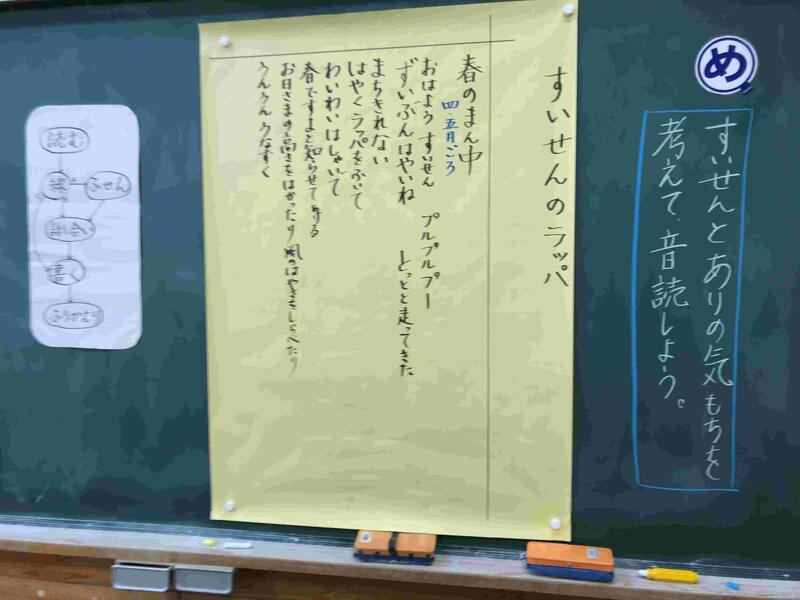 め
すいせんとありの気もちを
考えて、音読しよう。
すいせんのラッパ
春のまん中
四・五月ごろ
おはよう すいせん プルプルプー
ずいぶんはやいね とっとと走ってきた
まちきれない
はやくラッパをふいて
わいわいはしゃいで
春ですよと知らせて
お日さまの高さをはかったり 風のはやさをしらべたり
うんうんうなずく
読む
ふせん
書く
ふりかえり